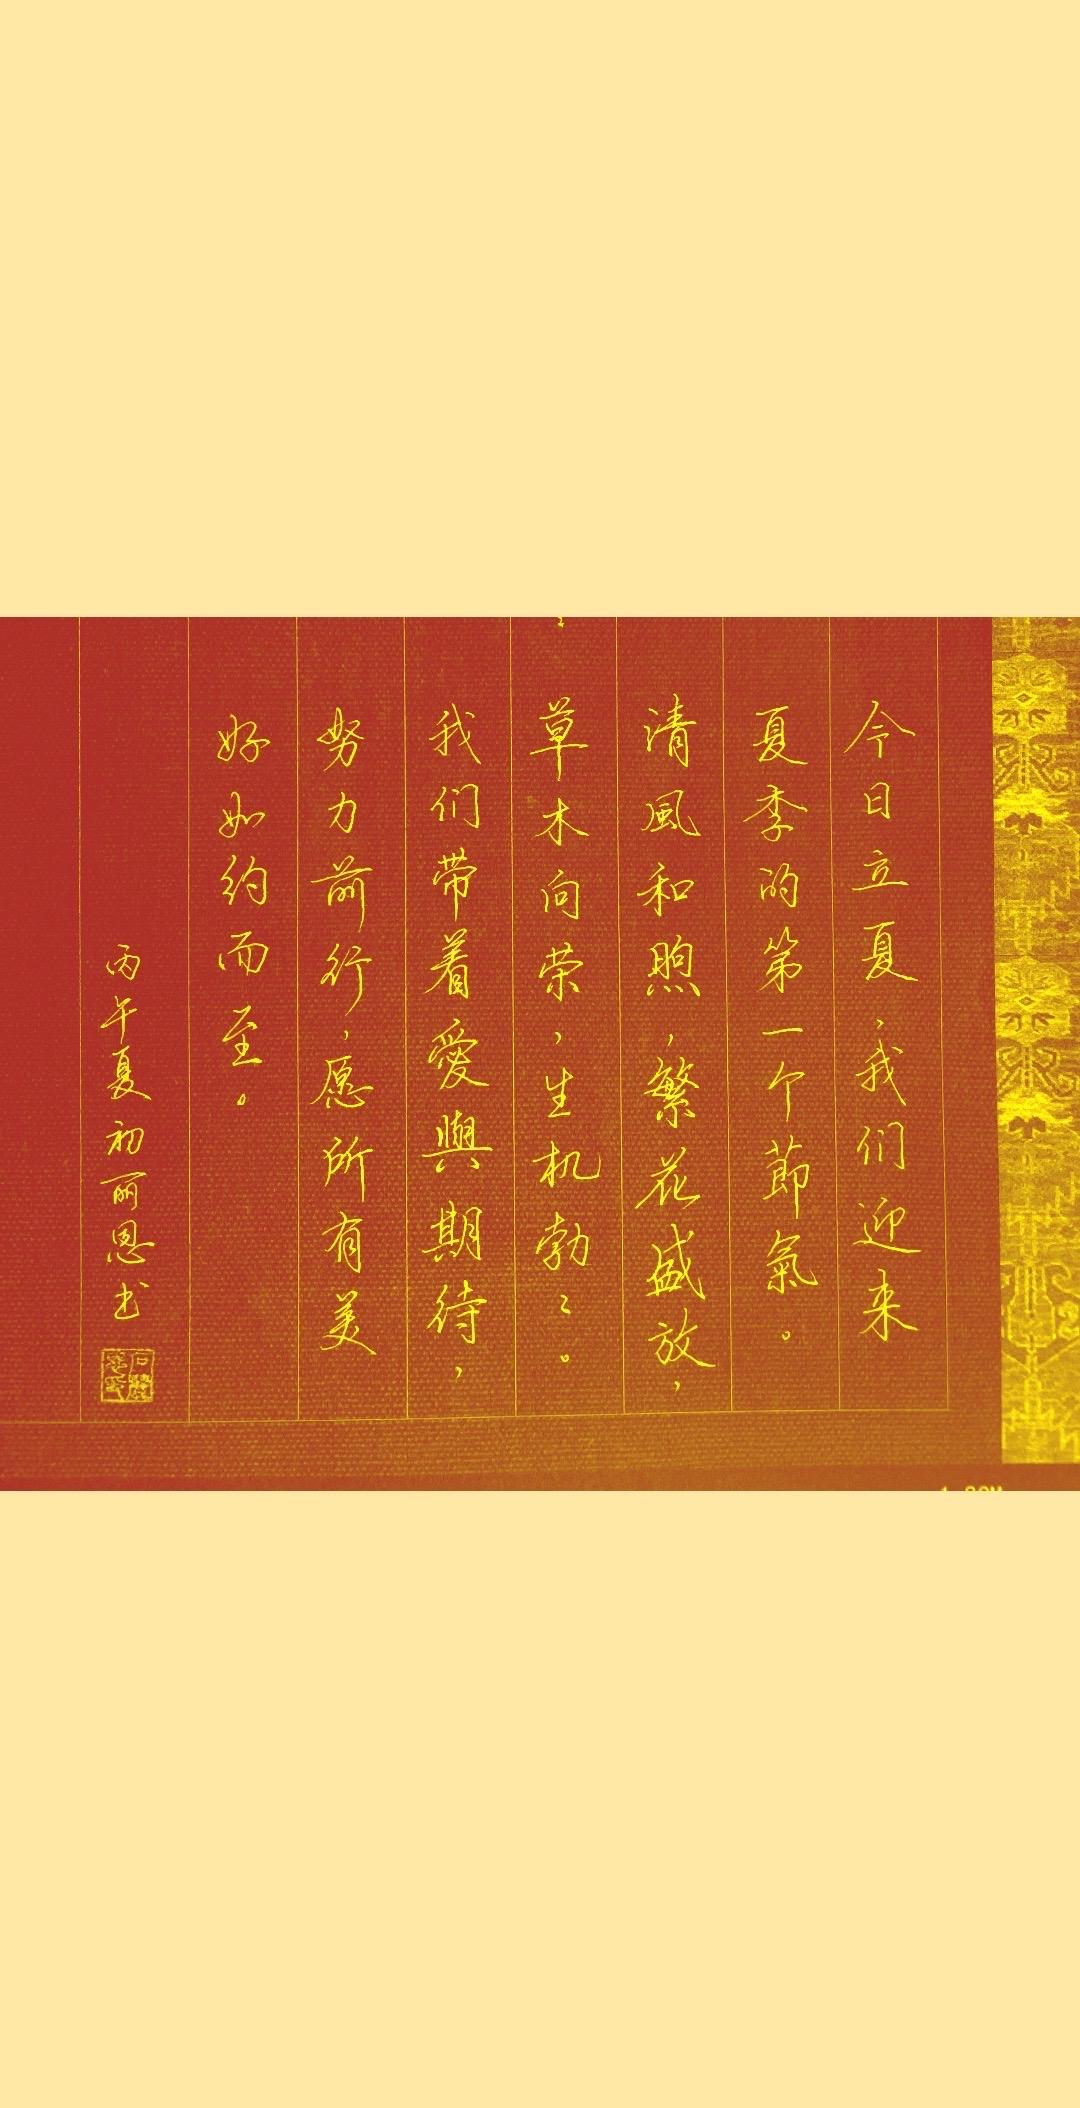 今日立夏,我们迎来
夏季的第一个節氣。
清風和煦,繁花盛放,
草木向荣,生机勃〻。
我们带着愛與期待,
努力前行,愿所有美
好如约而至。
丙午夏初丽恩书